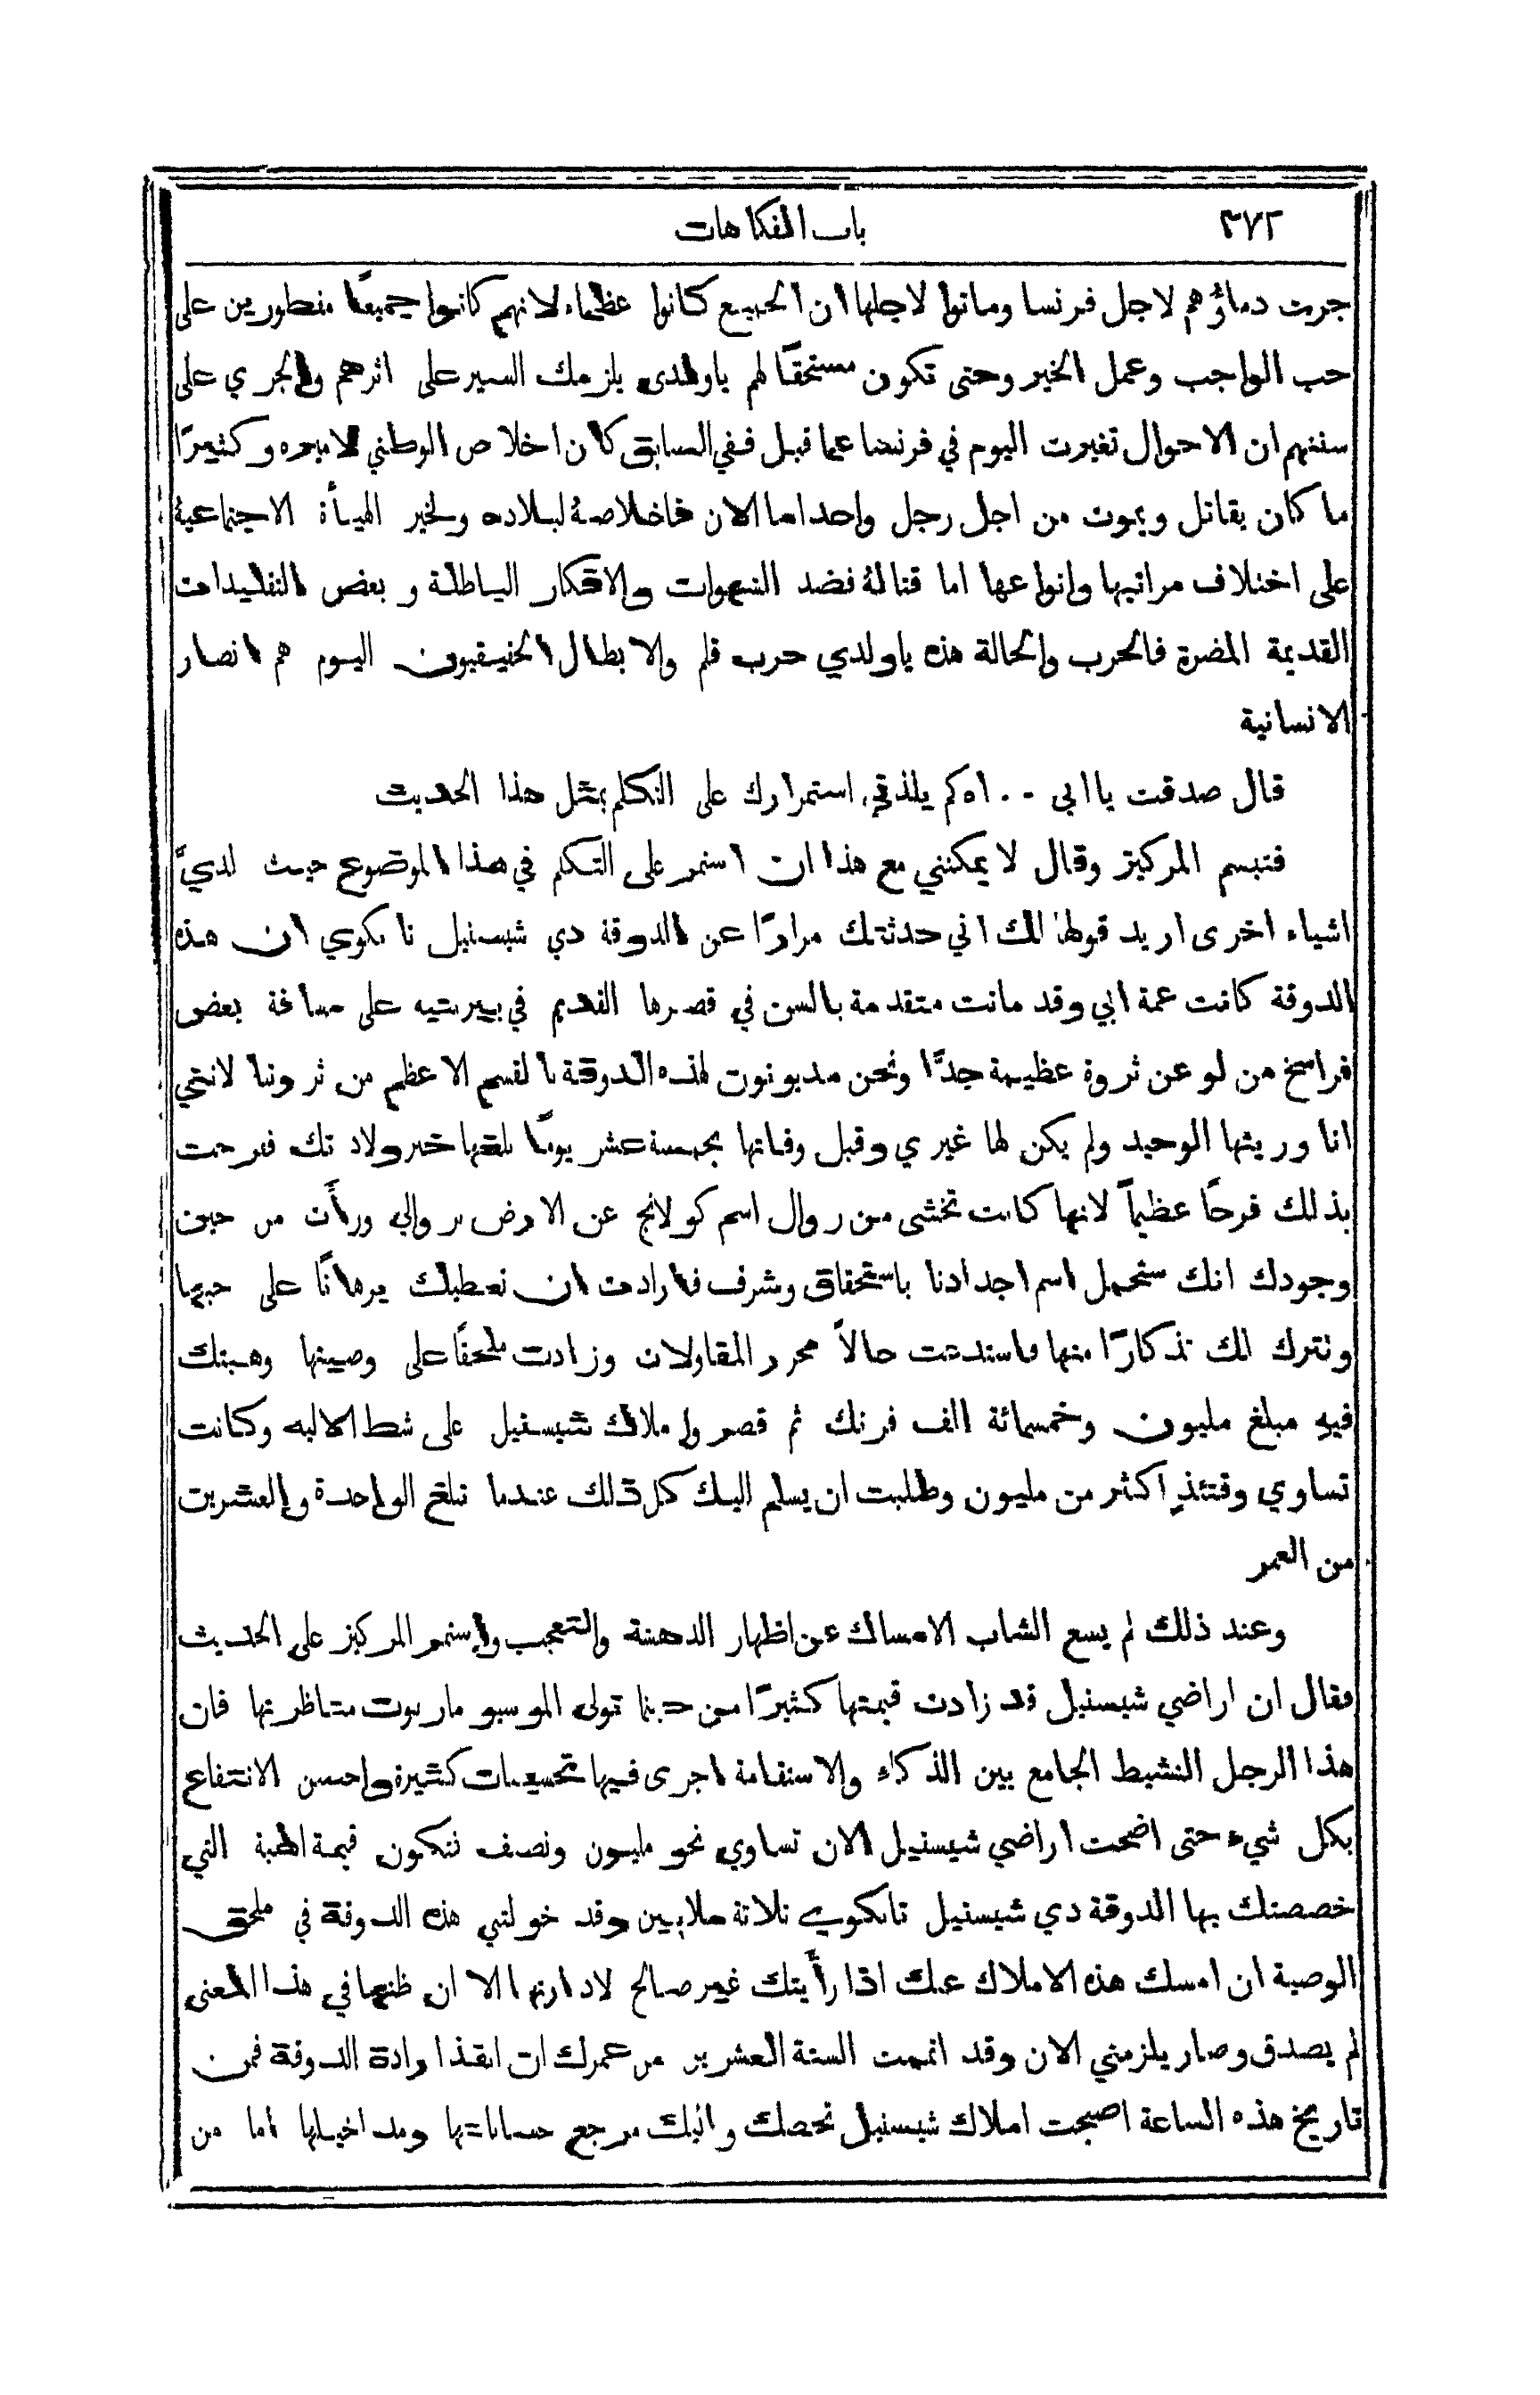 ٣٧٢ باب الفكاهات
جرت دماؤهم لاجل فرنسا وماتوا لاجلها ان الجميع كانوا عظماء لانهم كانوا جميعًا مفطورين على
حب الواجب وعمل الخير وحتى تكون مستحقًا لهم ياولدي يلزمك السير على اثرهم والجري على
سننهم ان الاحوال تغيرت اليوم في فرنسا عما قبل ففي السابق كان اخلاص الوطني لاميره وكثيرًا
ما كان يقاتل ويموت من اجل رجل واحد اما الان فاخلاصهُ لبلاده ولخير الهيأة الاجتماعية
على اختلاف مراتبها وانواعها اما قتالهُ فضد الشهوات والافكار الباطلة وبعض التقليدات
القديمة المضرة فالحرب والحالة هذه ياولدي حرب قلم والابطال الحقيقيون اليوم هم انصار
الانسانية
قال صدقت ياابي ٠٠ اه كم يلذني استمرارك على التكلم بمثل هذا الحديث
فتبسم المركيز وقال لا يمكنني مع هذا ان استمر على التكلم في هذا الموضوع حيث لديَّ
اشياء اخرى اريد قولها لك اني حدثتك مرارًا عن الدوقة دي شيسنيل تانكوي ان هذه
الدوقة كانت عمة ابي وقد ماتت متقدمة بالسن في قصرها القديم في بييرتيه على مسافة بعض
فراسخ من لو عن ثروة عظيمة جدًّا ونحن مديونون لهذه الدوقة بالقسم الاعظم من ثروتنا لانني
انا وريثها الوحيد ولم يكن لها غيري وقبل وفاتها بخمسة عشر يومًا بلغها خبر ولادتك ففرحت
بذلك فرحًا عظيمًا لانها كانت تخشى من زوال اسم كولانج عن الارض بزوالي ورأت من حين
وجودك انك ستحمل اسم اجدادنا باستحقاق وشرف فارادت ان تعطيك برهانًا على حبها
وتترك لك تذكارًا منها فاستدعت حالاً محرر المقاولات وزادت ملحقًا على وصيتها وهبتك
فيهِ مبلغ مليون وخمسمائة الف فرنك ثم قصر واملاك شيسنيل على شط الاليه وكانت
تساوي وقتئذٍ اكثر من مليون وطلبت ان يسلم اليك كل ذلك عندما تبلغ الواحدة والعشرين
من العمر
وعند ذلك لم يسع الشاب الامساك عن اظهار الدهشة والتعجب واستمر المركيز على الحديث
فقال ان اراضي شيسنيل قد زادت قيمتها كثيرًا من حينما تولى الموسيو ماربوت مناظرتها فان
هذا الرجل النشيط الجامع بين الذكاء والاستقامة اجرى فيها تحسينات كثيرة واحسن الانتفاع
بكل شيء حتى اضحت اراضي شيسنيل الان تساوي نحو مليون ونصف فتكون قيمة الهبة التي
خصصتك بها الدوقة دي شيسنيل تانكوي ثلاثة ملايين وقد خولتني هذه الدوقة في ملحق
الوصية ان امسك هذه الاملاك عنك اذا رأيتك غير صالح لادارتها الا ان ظنها في هذا المعنى
لم يصدق وصار يلزمني الان وقد اتممت السنة العشرين من عمرك ان انفذ ارادة الدوقة فمن
تاريخ هذه الساعة اصبحت املاك شيسنيل تخصك واليك مرجع حساباتها ومداخيلها اما من